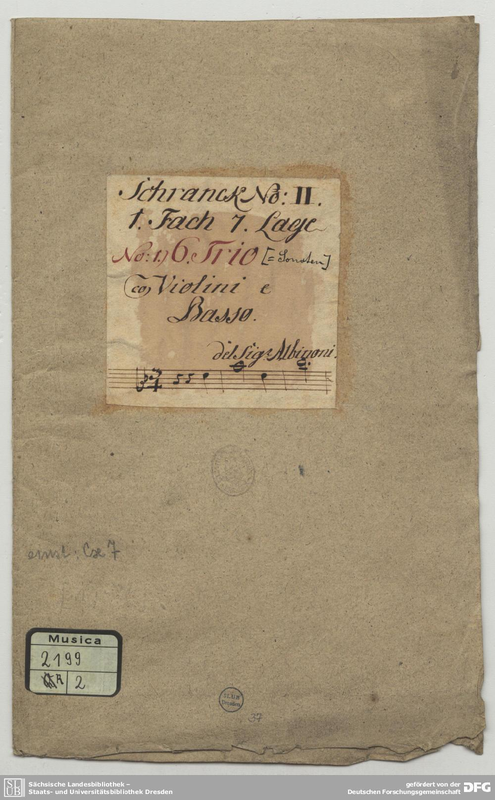 Schranck No: II.
1. Fach 7. Lage
No: 1) 6. Trio [= Sonaten]
co Violini e
Basso.
del Sigr Albinoni.
einst: Cx 7
Musica
2199
A 2
37
SLUB
Sächsische Landesbibliothek –
Staats- und Universitätsbibliothek Dresden
gefördert von der
Deutschen Forschungsgemeinschaft DFG